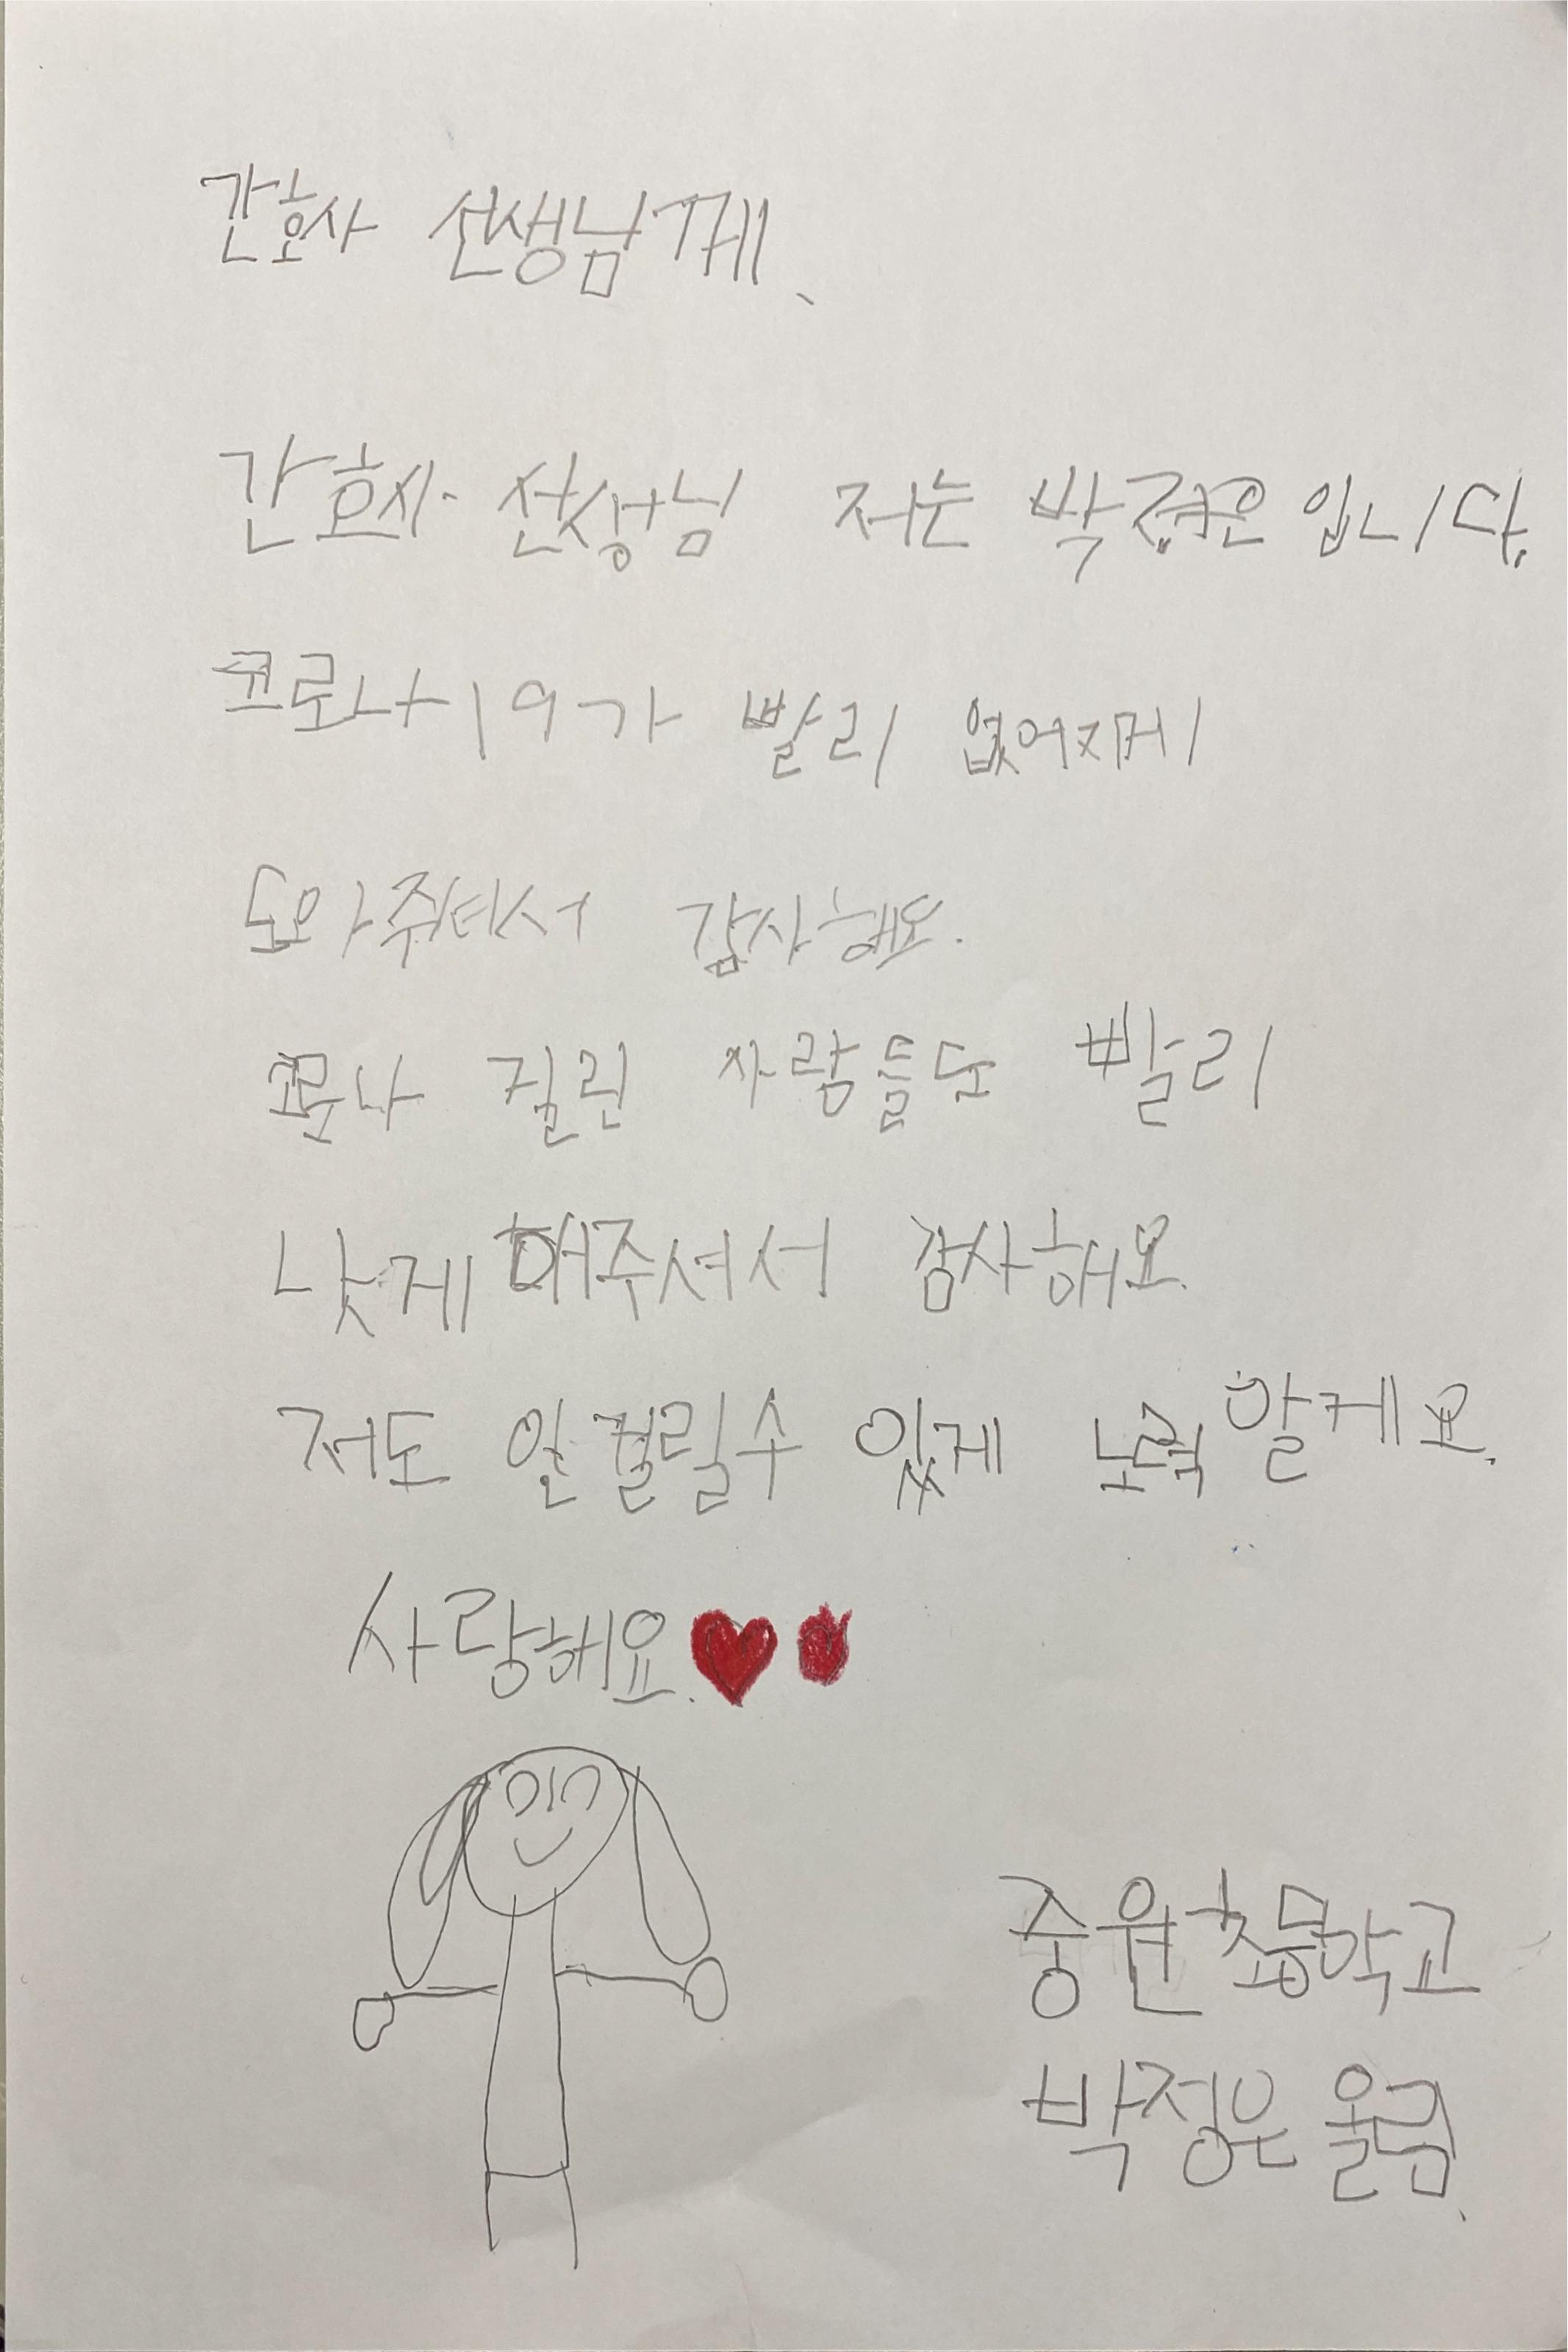 간호사 선생님께.
간호사 선생님 저는 박정은입니다.
코로나19가 빨리 없어지게
도와주셔서 감사해요.
코로나 걸린 사람들도 빨리
낫게 해주셔서 감사해요.
저도 안 걸릴수 있게 노력 할게요.
사랑해요.
중원초등학교
박정은 올림.